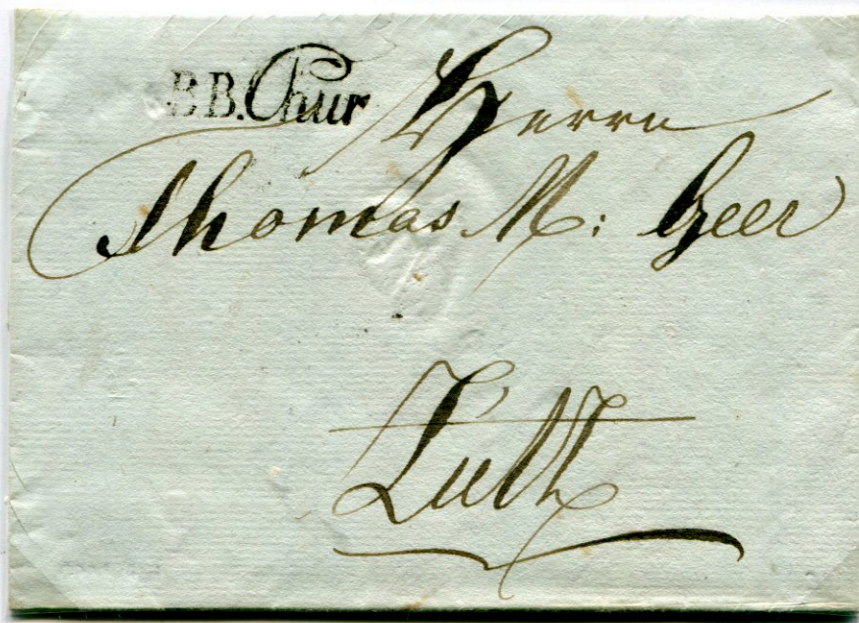 B B. Chur
Herrn
Thomas M: Geer
Zutz